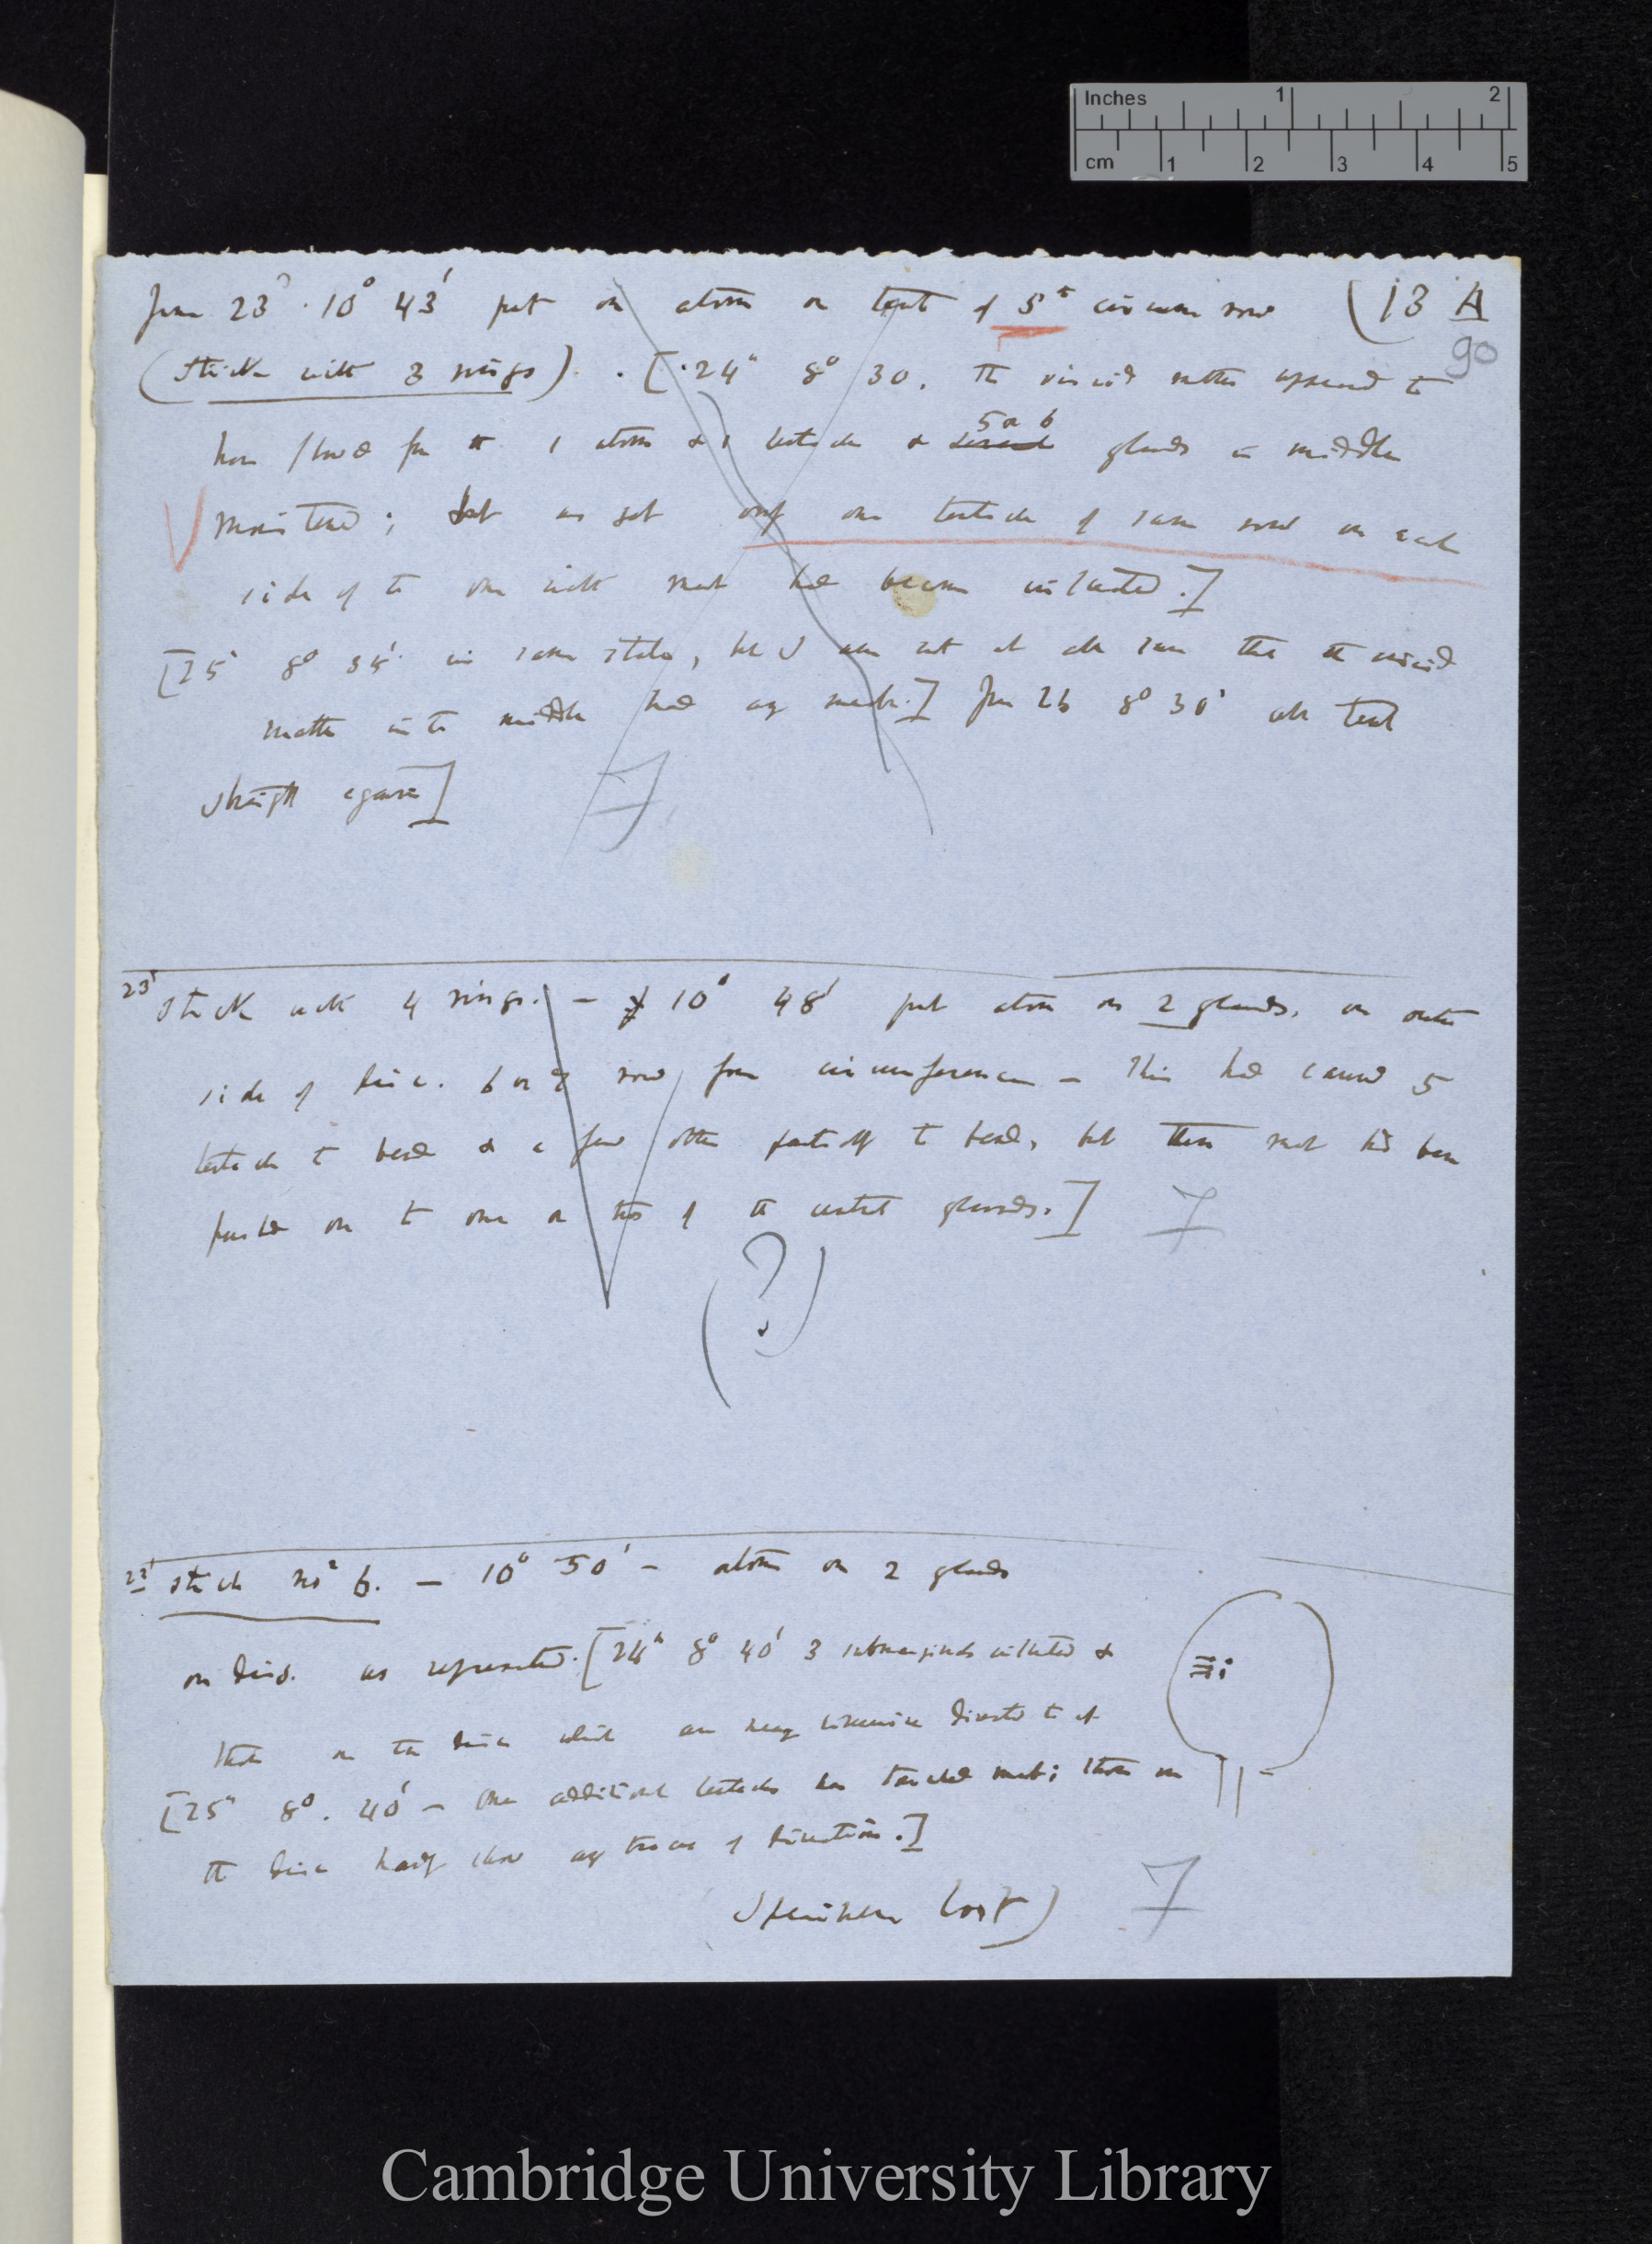 Inches 1 2
cm 1 2 3 4 5
June 23d. 10° 43' put an atom on tent of 5th circum row (13 A
90
(Stick with 3 rings). [24th 8° 30. The viscid matter appeared to
have flowed from the 1 atom & 1 tentacle & several 5 or 6 glands in middle
moistened; but as yet only one tentacle of same row on each
side of the one with meat had become inflected.]
[25th 8° 35' in same state, but I am not at all sure that the viscid
matter in the middle had any meat.] June 26 8° 30' all tent
straight again]
7
23d Stick with 4 rings. — 10° 48' put atom on 2 glands, on outer
side of disc. 6 or 7 row from circumference — This had caused 5
tentacles to bend & a few other partially to bend, but then meat had been
pushed on to one or two of the central glands.] 7
(?)
23d Stick no 6. — 10° 50' — atom on 2 glands
on disc. as represented. [24th 8° 40' 3 submarginals inflected &
those on the disc which are near likewise directed to it
[25th 8°. 40' — One additional tentacle has touched meat; those on
the disc hardly show any traces of direction.]
Specimen lost) 7
Cambridge University Library